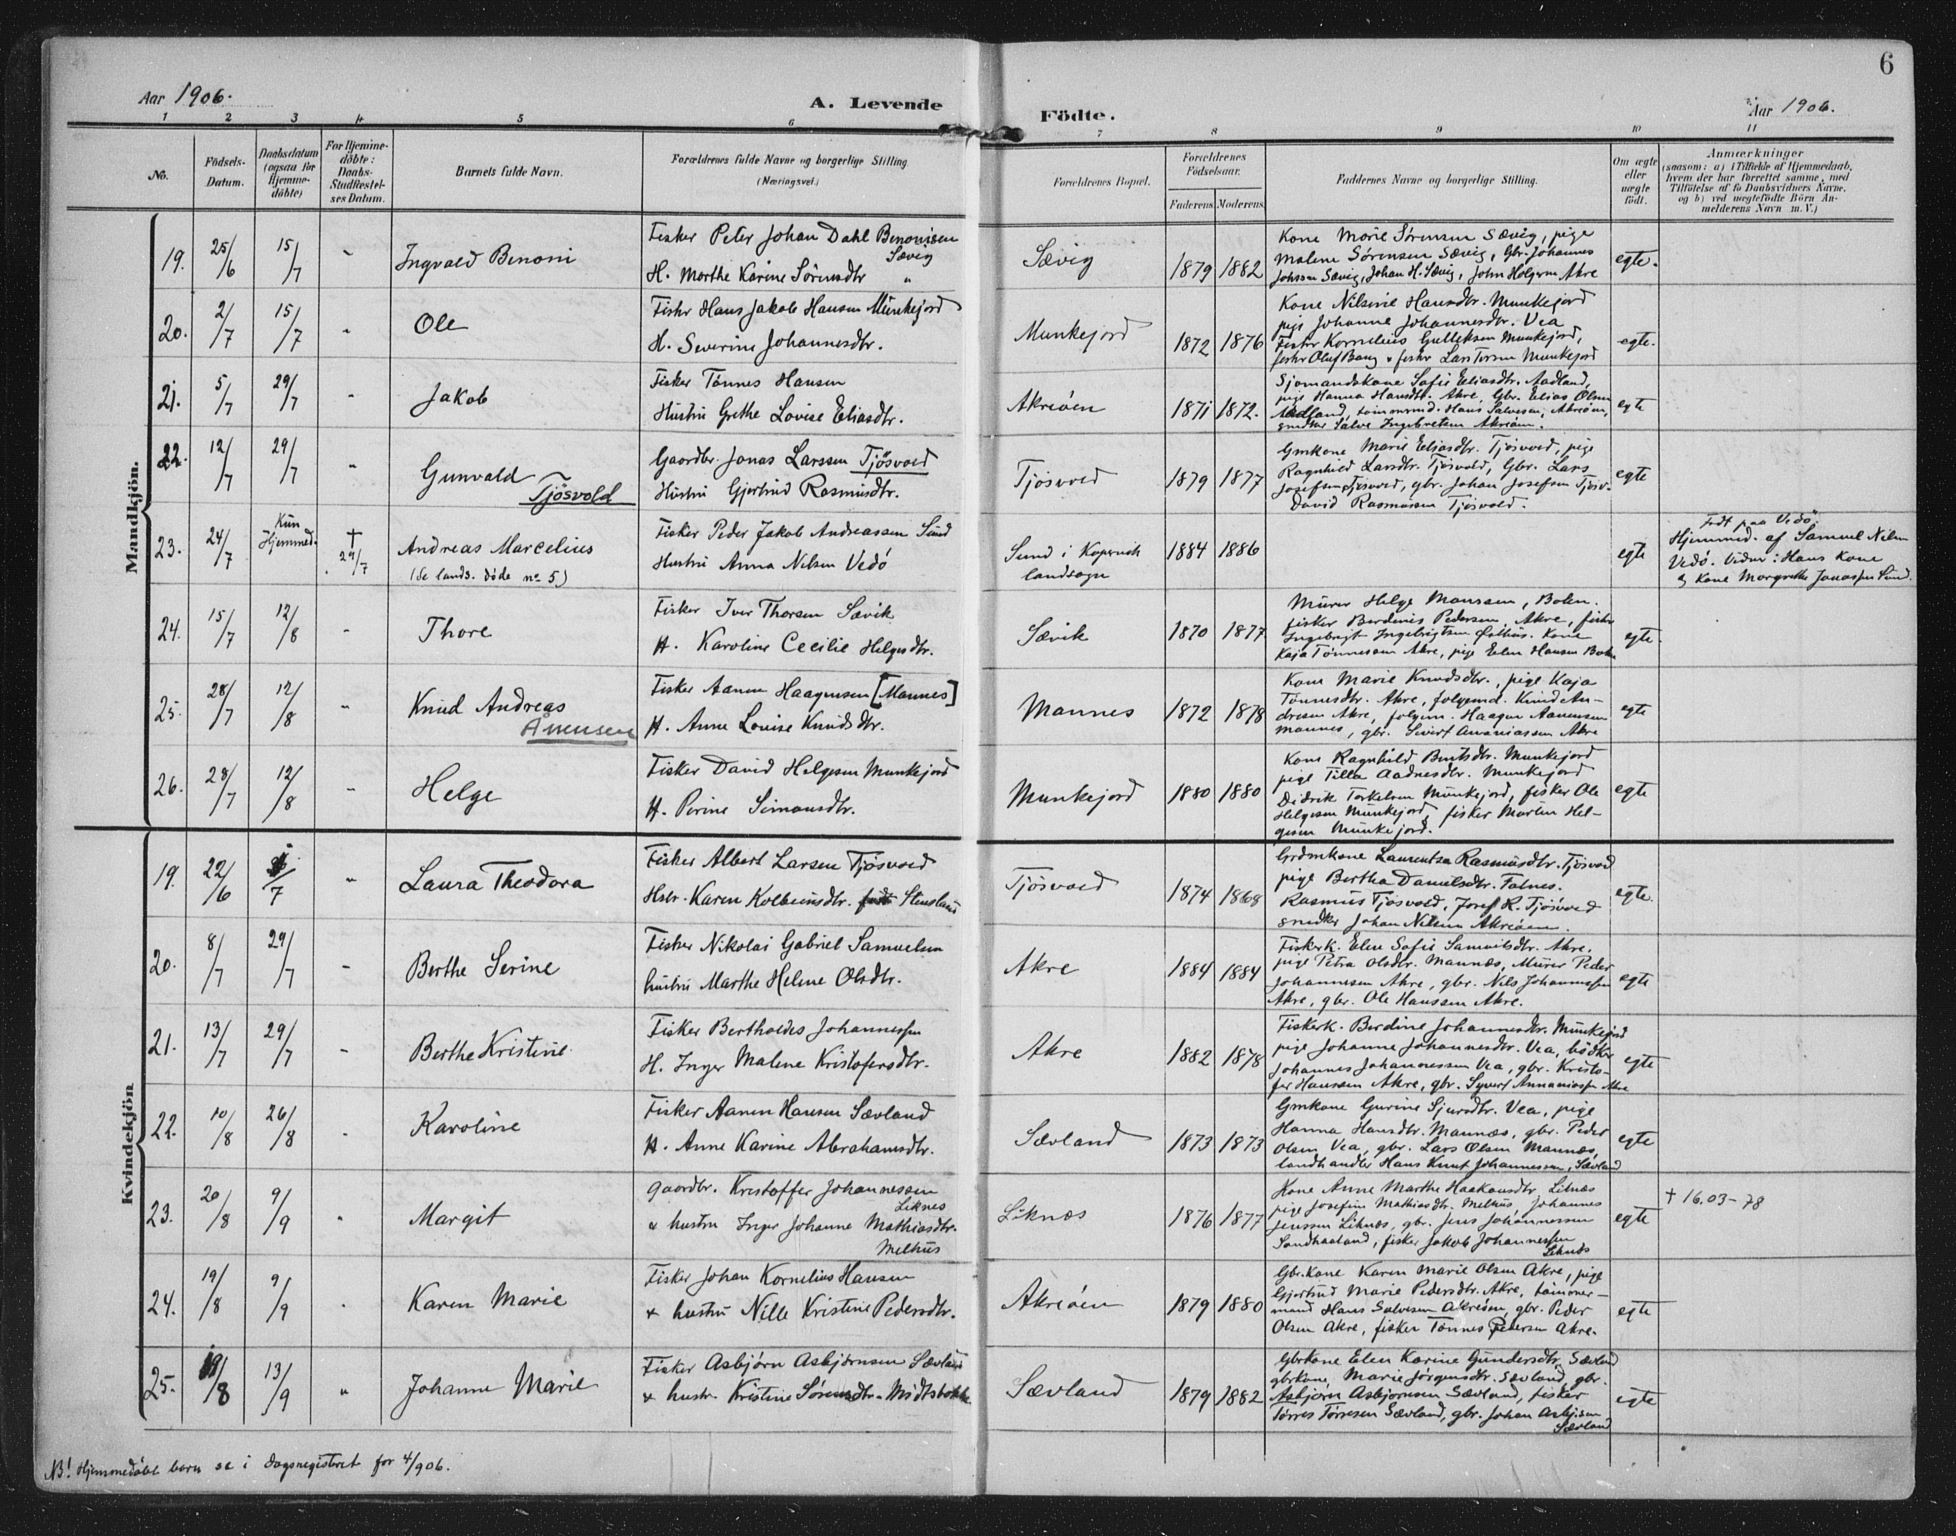 6
Aar 1906.
A. Levende Födte.
Aar 1906.
1 2 3 4 5 6 7 8 9 10 11
No.
Födsels-Datum.
Daabsdatum (ogsaa for Hjemmedöbte)
For Hjemmedöbte: Daabs-Stadfæstelses Datum.
Barnets fulde Navn.
Forældrenes fulde Navne og borgerlige Stilling
(Næringsvei.)
Forældrenes Bopæl.
Forældrenes Födselsaar.
Faderens Moderens
Faddernes Navne og borgerlige Stilling.
Om ægte eller uægte födt.
Anmærkninger
(saasom: a) i Tilfælde af Hjemmedaab,
hvem der har forrettet samme, med
Tilföielse af to Daabsvidners Navne,
og b) ved uægtefödte Börn An-
melderens Navn m. V.)
Mandkjön.
19. 25/6 15/7 " Ingvald Benoni
Fisker Peter Johan Dahl Benonisen
Sævig
H. Marthe Karine Sörensdtr "
Sævig 1879 1882
Kone Marie Sørensen Sævig, pige
Malene Sörensen Sævig, Gbr. Johannes
Johnsen Sævig, Johan H. Sævig, John Holgersen Akre
egte.
20. 2/7 15/7 " Ole
Fisker Hans Jakob Hansen Munkejord
H. Severine Johannesdtr.
Munkejord 1872 1876
Kone Nilsine Hansdtr. Munkejord
pige Johanne Johannesdtr. Vea
Fisker Kornelius Gulleksen Munkejord,
fisker Oluf Bang & fisker Lars Torsen Munkejord
egte.
21. 5/7 29/7 " Jakob
Fisker Tönnes Hansen
Hustru Grethe Lovise Eliasdtr.
Akreöen 1871 1872.
Sjomandskone Sofie Eliasdtr. Aadland,
pige Hanna Hansdtr. Akre, Gbr. Elias Olsen
Aadland, tømmermd. Hans Salvesen, Akreöen,
snedker Salve Ingebretsen Akreöen.
egte
22. 12/7 29/7 " Gunvald
Tjösvold
Gaardbr. Jonas Larssen Tjösvold
Hustru Gjertrud Rasmusdtr.
Tjösvold 1879 1877
Gmkone Marie Eliasdtr. Tjösvold, pige
Ragnhild Larsdtr. Tjösvold, Gbr. Lars
Josefsen Tjösvold, gbr. Johan Josefsen Tjösv.
David Rasmussen Tjösvold.
egte
23. 24/7 Kun Hjemmed. † 27/7 Andreas Marcelius
(Se lands. döde no 5)
Fisker Peder Jakob Andreassen Sund
Hustru Anna Nilsen Vedö
Sund i Kopervik
landsogn
1884 1886 egte
Födt paa Vedö.
Hjemmed. af Samuel Nilsen
Vedö. Vidner: Hans Kone
og Kone Margrethe Jonassen Sund.
24. 15/7 12/8 " Thore
Fisker Iver Thorsen Sævik
H. Karoline Cecilie Helgesdtr.
Sævik 1870 1877
Murer Helge Monssen, Boken.
fisker Berdinis Pedersen, Akre, fisker
Ingebrigt Ingebrigtsen Østhus. Kone
Kaja Tönnessen Akre, pige Elen Hansen Boken
egte.
25. 28/7 12/8 " Knud Andreas
Ånensen
Fisker Aanen Haagensen [Mannes]
H. Anne Louise Knudsdtr.
Mannes 1872 1878
Kone Marie Knudsdtr., pige Kaja
Tönnesdtr. Akre, folgemd. Knud An-
dresen Akre, folgem. Haagen Aanensen
Mannes, gbr. Sivert Ananiassen Akre
egte
26. 28/7 12/8 " Helge
Fisker David Helgesen Munkejord
H. Perine Simonsdtr.
Munkejord 1880 1880
Kone Ragnhild Bentsdtr. Munkejord
pige Tilla Aadnesdtr. Munkejord
Didrik Torkelsen Munkejord, fisker Ole
Helgesen Munkejord, fisker Martin Hel-
gesen Munkejord.
egte
Kvindekjön
19. 22/6 /7 " Laura Theodora
Fisker Albert Larsen Tjösvold
Hstr. Karen Kolbeinsdtr. født Stensland
Tjösvold 1874 1868
Grdmkone Laurentza Rasmusdtr. Tjösvold
pige Bertha Danielsdtr. Falnes.
Rasmus Tjösvold, Josef R. Tjösvold
snedker Johan Nilsen Akreöen.
egte.
20. 8/7 29/7 " Berthe Serine
Fisker Nikolai Gabriel Samuelsen
hustru Marthe Helene Olsdtr.
Akre 1884 1884
Fiskerk. Elen Sofie Samuelsdtr. Akre.
pige Petra Olsdtr. Mannes, Murer Peder
Johannesen Akre, gbr. Nils Johannessen
Akre, gbr. Ole Hanssen Akre.
egte
21. 13/7 29/7 " Berthe Kristine
Fisker Bertholdes Johannessen
H. Inger Malene Kristofersdtr.
Akre 1882 1878
Fiskerk. Berdine Johannesdtr. Munkejord
pige Johanne Johannesdtr. Vea, bödker
Johannes Johannessen Vea, gbr. Kristo-
fer Hanssen Akre, gbr. Syvert Annaniassen Akre
egte
22. 10/8 26/8 " Karoline
Fisker Aanen Hansen Sævland
H. Anne Karine Abrahamsdtr.
Sævland 1873 1873
Gmkone Gurine Sjursdtr. Vea, pige
Hanna Hansdtr. Mannæs, gbr. Peder
Olsen Vea, gbr. Lars Olsen Mannæs,
landhandler Hans Knut Johannessen, Sævland
egte
23. 20/8 9/9 " Margit
Gaardbr. Kristoffer Johannessen
Liknes
& hustru Inger Johanne Mathiasdtr.
Melhus
Liknæs 1876 1877
Kone Anne Marthe Haakonsdtr Liknæs
pige Josefine Mathiasdtr. Melhus, Johannes
Jenssen Liknæs, gbr. Jens Johannessen
Sandhaaland, fisker Jakob Johannessen
Liknæs
egte
† 16.03-78
24. 19/8 9/9 " Karen Marie
Fisker Johan Kornelius Hansen
& hustru Nille Kristine Pedersdtr.
Akreöen 1879 1880
Gbr.kone Karen Marie Olsen Akre, pige
Gjertrud Marie Pedersdtr. Akre, tömmer-
mand Hans Salvesen Akreöen, gbr. Peder
Olsen Akre, fisker Tönnes Petersen Akre.
egte
25. /8 13/9 " Johanne Marie
Fisker Asbjörn Asbjörnsen Sævland
& hustr. Kristine Sörensdtr. Midtsbakke
Sævland 1879 1882
Gbrkone Elen Karine Gundersdtr. Sævland
gbrkone, Marie Jörgensdtr. Sævland, gbr.
Asbjörn Asbjörnsen Sævland, fisker
Tørres Tørresen Sævland, gbr. Johan Asbj.sen
Sævland
egte
NB! Hjemmedöbt barn se i dagsregisteret for 4/906.